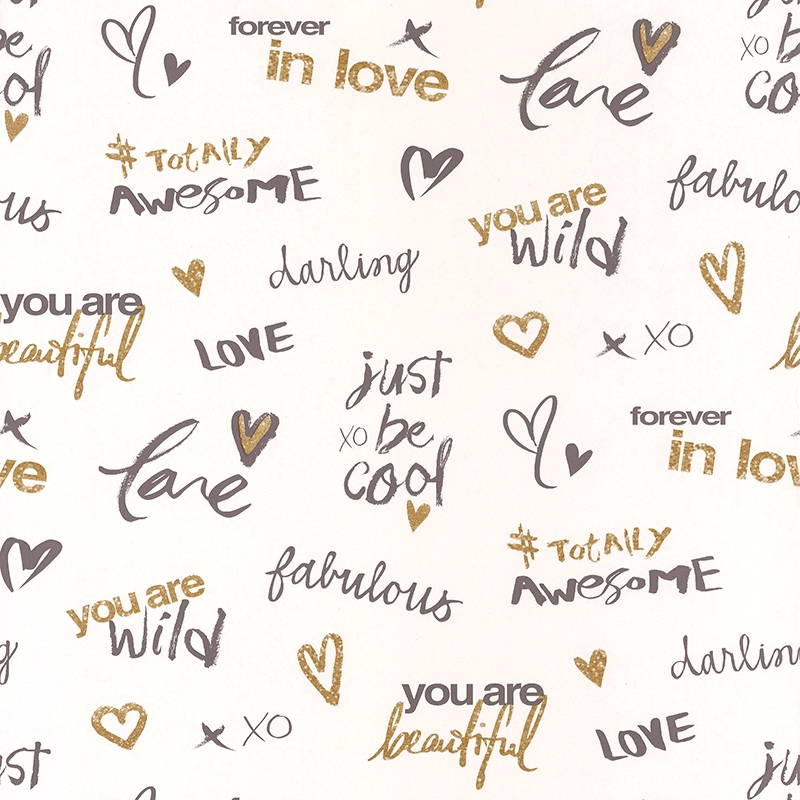 forever
in love
love
be
xo
cool
# TotAlly
AwesoME
fabulo
us
you are
wild
darling
you are
beautiful
LOVE
x XO
just
xo be
cool
forever
in lov
ve
love
# TotAlly
AwesoME
fabulous
you are
wild
g
darlin
you are
beautiful
x XO
LOVE
st
ju